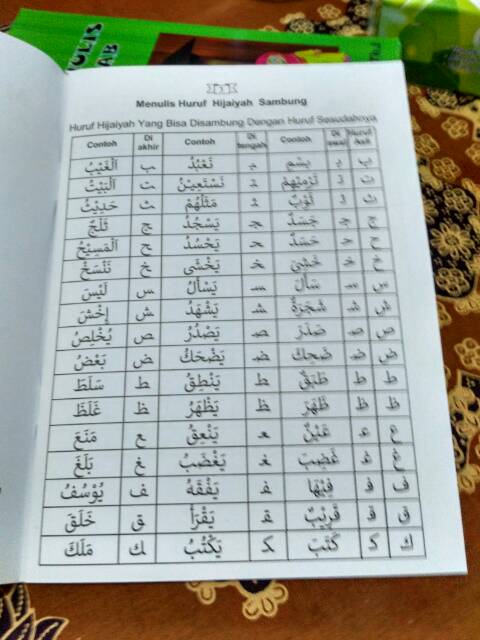 ULIS
AB
3
Menulis Huruf Hijaiyah Sambung
Huruf Hijaiyah Yang Bisa Disambung Dengan Huruf Sesudahnya
Contoh Di akhir Contoh Di tengah Contoh Di awal Huruf Asli
ب بـ بِسْمِ ـبـ نَعْبُدُ ـب اَلْغَيْبُ
ت تـ تَرْمِيْهِمْ ـتـ نَسْتَعِيْنُ ـت اَلْبَيْتُ
ث ثـ ثَوْبٌ ـثـ مَثَلُهُمْ ـث حَدِيْثُ
ج جـ جَسَدٌ ـجـ يَسْجُدُ ـج ثَلْجٌ
ح حـ حَسَدٌ ـحـ يَحْسُدُ ـح اَلْمَسِيْحُ
خ خـ خَشِيَ ـخـ يَخْشَى ـخ نَنْسَخْ
س سـ سَأَلَ ـسـ يَسْأَلُ ـس لَيْسَ
ش شـ شَجَرَةٌ ـشـ يَشْهَدُ ـش إِخْشَ
ص صـ صَدَرَ ـصـ يَصْدُرُ ـص يُخْلِصُ
ض ضـ ضَحِكَ ـضـ يَضْحَكُ ـض بَعْضُ
ط طـ طَبَقٌ ـطـ يَنْطِقُ ـط سَلَطَ
ظ ظـ ظَهَرَ ـظـ يَظْهَرُ ـظ غَلَظَ
ع عـ عَيْنٌ ـعـ يَنْعِقُ ـع مَنَعَ
غ غـ غَضِبَ ـغـ يَغْضَبُ ـغ بَلَغَ
ف فـ فِيْهَا ـفـ يَفْقَهُ ـف يُوْسُفُ
ق قـ قَرِيْبٌ ـقـ يَقْرَأُ ـق خَلَقَ
ك كـ كَتَبَ ـكـ يَكْتُبُ ـك مَلَكَ